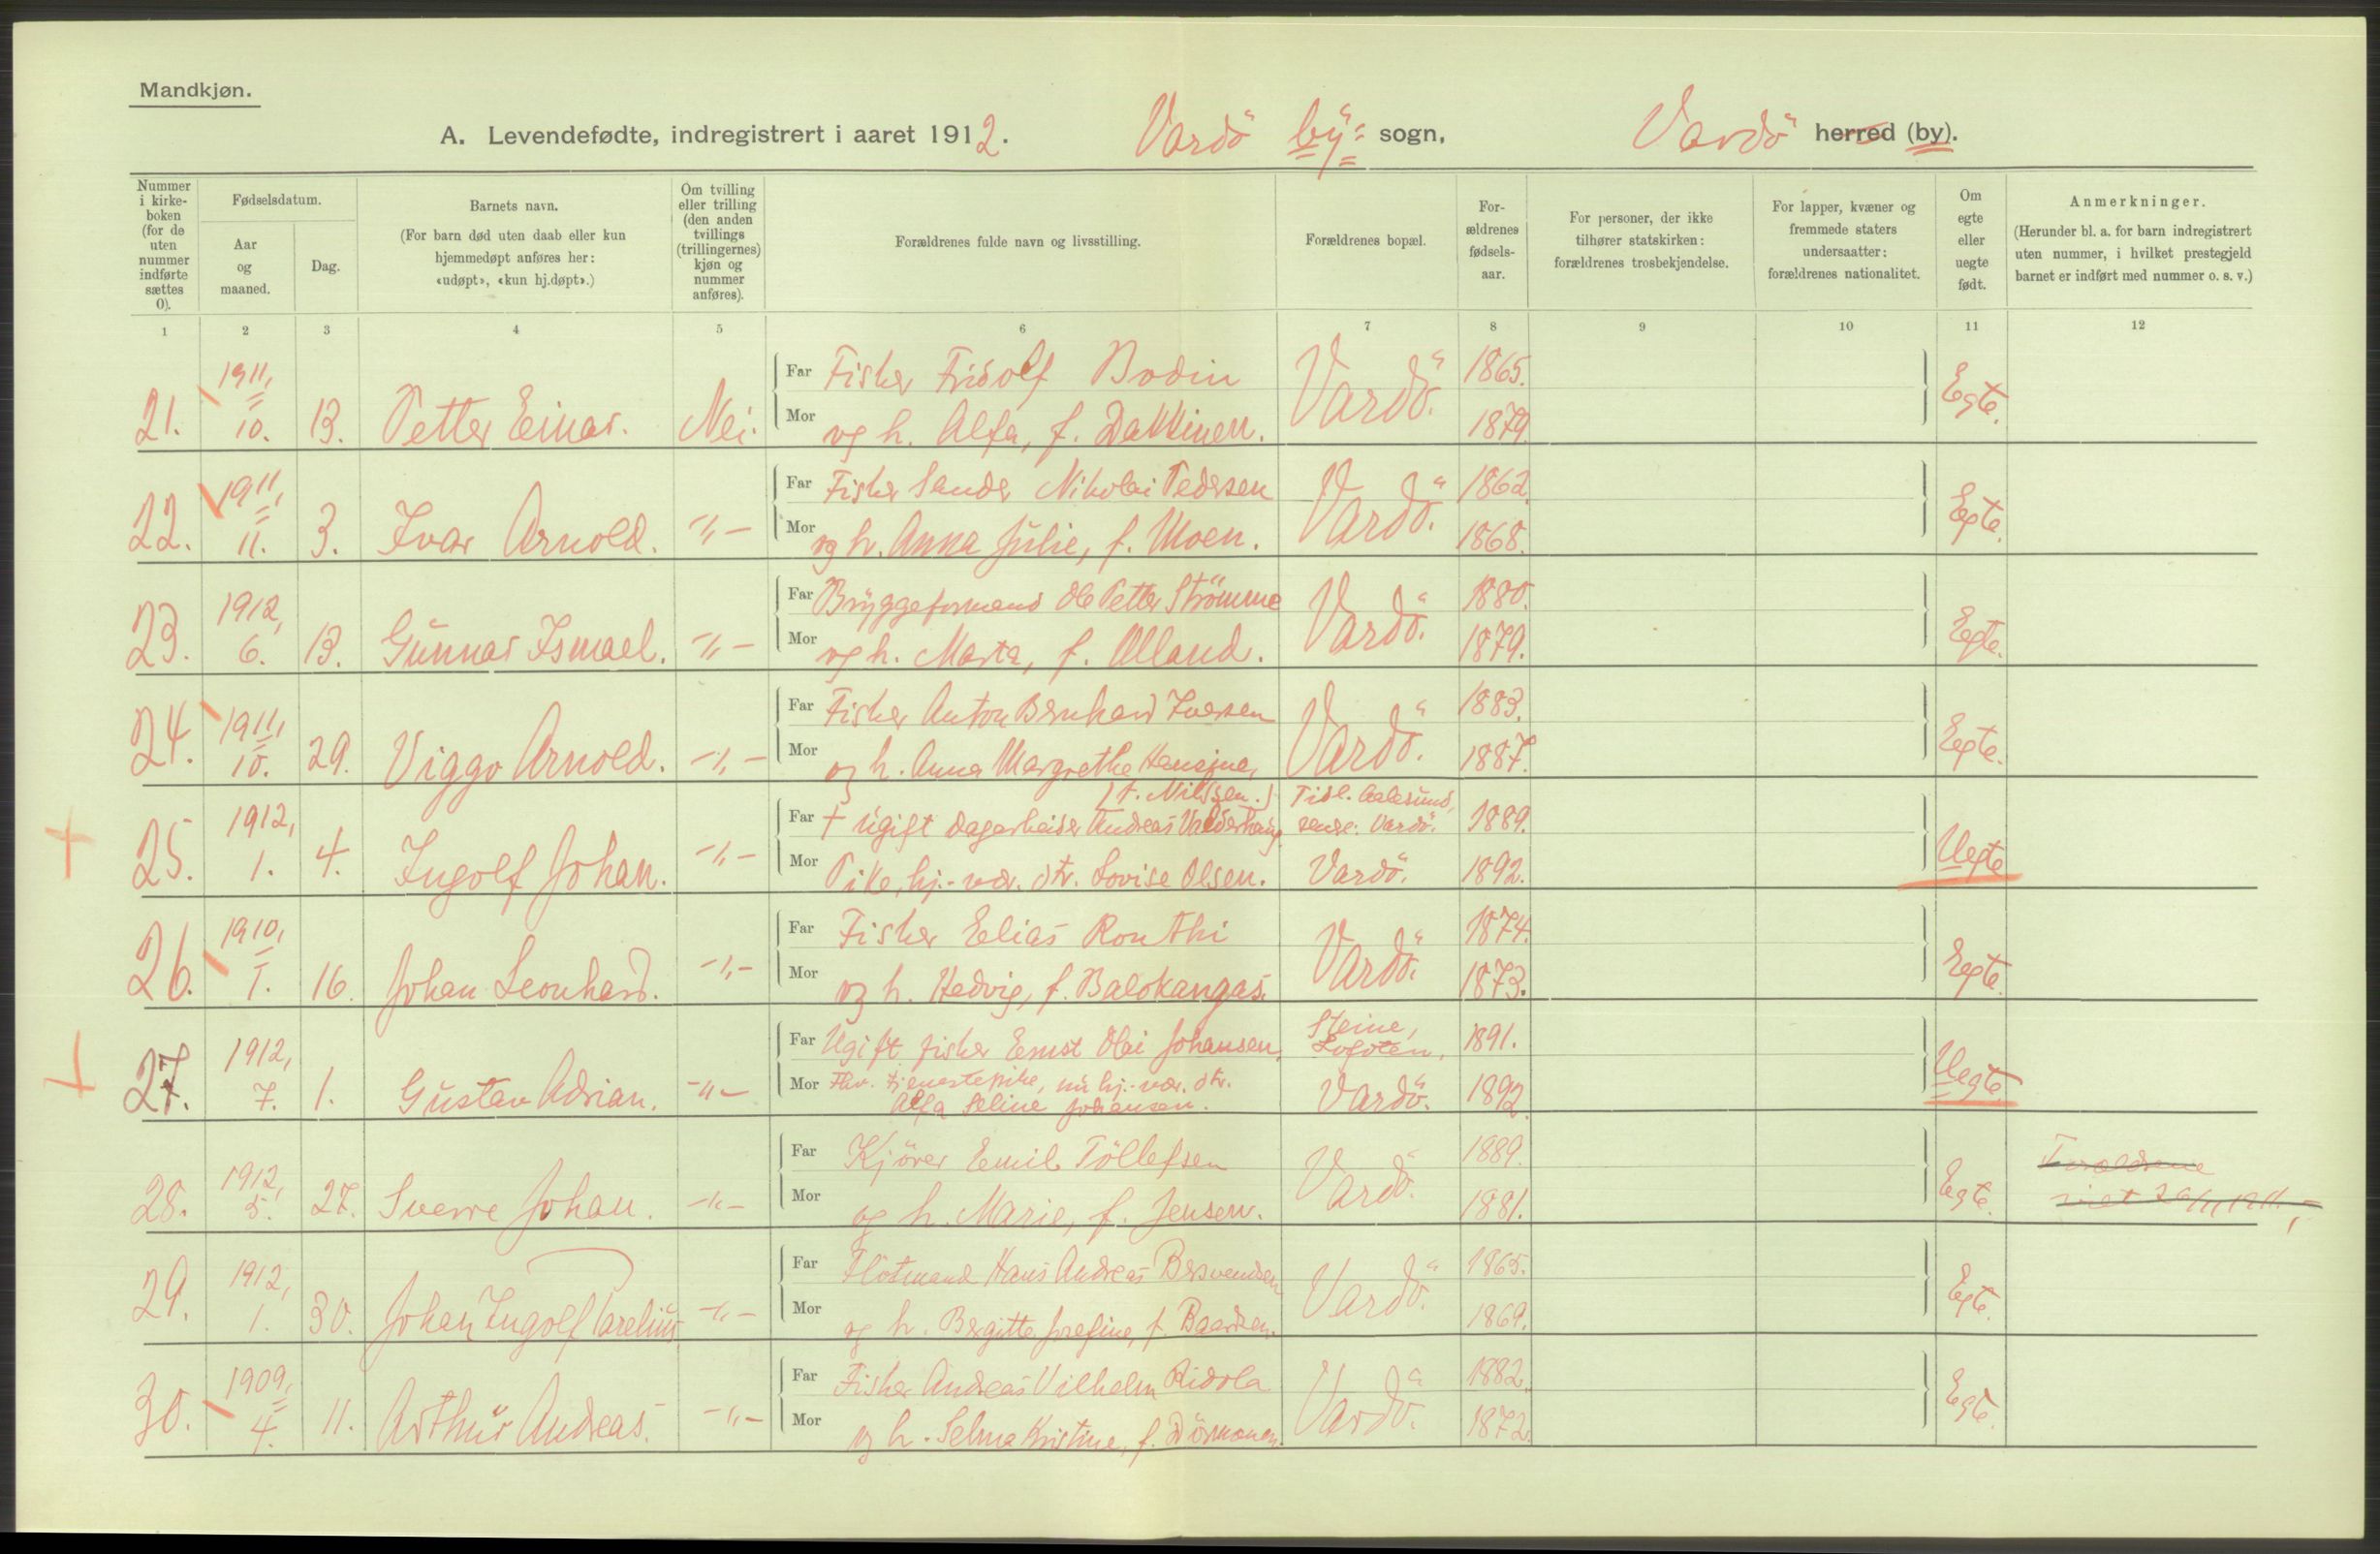 Mandkjøn.
A. Levendefødte, indregistrert i aaret 1912. Vardö by= sogn, Vardö herred (by).
Nummer i kirke-boken (for de uten nummer indførte sættes 0).
Fødselsdatum.
Aar og maaned.
Dag.
Barnets navn.
(For barn død uten daab eller kun hjemmedøpt anføres her: «udøpt», «kun hj.døpt».)
Om tvilling eller trilling (den anden tvillings (trillingernes) kjøn og nummer anføres).
Forældrenes fulde navn og livsstilling.
Forældrenes bopæl.
For-ældrenes fødsels-aar.
For personer, der ikke tilhører statskirken: forældrenes trosbekjendelse.
For lapper, kvæner og fremmede staters undersaatter: forældrenes nationalitet.
Om egte eller uegte født.
Anmerkninger.
(Herunder bl. a. for barn indregistrert uten nummer, i hvilket prestegjeld barnet er indført med nummer o. s. v.)
1 2 3 4 5 6 7 8 9 10 11 12
21. 1911, 10. 13. Petter Einar. Nei.
Far Fisker Fridolf Bodin Vardö. 1865. Egte.
Mor og h. Alfa, f. 1879.
22. 1911, 11. 3. Ivar Arnold. -"-
Far Fisker Sander Nikolai Pedersen Vardö. 1862. Egte.
Mor og h. Anna Julie, f. Moen. 1868.
23. 1912, 6. 13. Gunnar Ismael. -"-
Far Bryggeformand Ole Petter Strömme Vardö. 1880. Egte.
Mor og h. Marta, f. 1879.
24. 1911, 10. 29. Viggo Arnold. -"-
Far Fisker Anton Bernhard Iversen Vardö. 1883. Egte.
Mor og h. Anna Margrethe Hansine, 1887.
(f. Nilssen.)
25. 1912, 1. 4. Ingolf Johan. -"-
Far + Ugift dagarbeider Andreas Valderhaug Tidl. Aalesund, senere: Vardö. 1889. Uegte
Mor Pike, hj.-vær. dtr. Lovise Olsen. Vardö. 1892.
26. 1910, 1. 16. Johan Leonhard. -"-
Far Fisker Elias Vardö. 1874. Egte.
Mor og h. Hedvig, f. Balokangas. 1873.
27. 1912, 7. 1. Gustav Adrian. -"-
Far Ugift fisker Ernst Olai Johansen, Steine, Lofoten, 1891. Uegte.
Mor Fhv. tjenestepike, nu hj.-vær. dtr. Vardö. 1892.
Alfa Seline Johansen.
28. 1912, 5. 27. Sverre Johan. -"-
Far Kjörer Emil Töllefsen Vardö. 1889. Egte. Forældrene
Mor og h. Marie, f. Jensen. 1881. viet 26/11 1911.
29. 1912, 1. 30. Johan Ingolf Parelius -"-
Far Flotmand Hans Andreas Bersvendsen Vardö. 1865. Egte.
Mor og h. Bergitte Josefine, f. Baardsen. 1869.
30. 1909, 4. 11. Arthur Andreas. -"-
Far Fisker Andreas Vilhelm Ridola Vardö. 1882. Egte.
Mor og h. Selma Kristine, f. 1872.